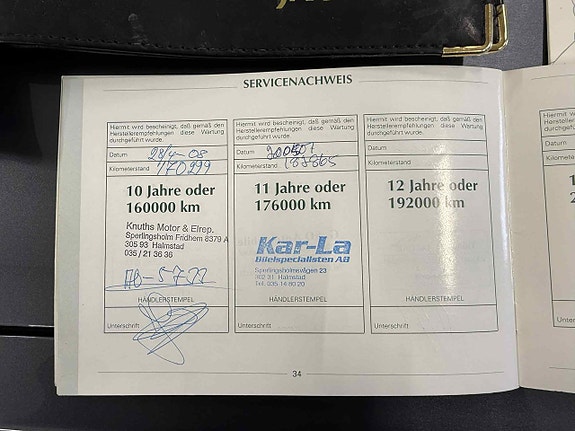 SERVICENACHWEIS
Hiermit wird bescheinigt, daß gemäß den
Herstellerempfehlungen diese Wartung
durchgeführt wurde.
Datum 28/4-08
Kilometerstand 170299
10 Jahre oder
160000 km
Knuths Motor & Elrep.
Sperlingsholm Fridhem 8379 A
305 93 Halmstad
035 / 21 36 36
HÄNDLERSTEMPEL
Unterschrift
Hiermit wird bescheinigt, daß gemäß den
Herstellerempfehlungen diese Wartung
durchgeführt wurde.
Datum
Kilometerstand 187865
11 Jahre oder
176000 km
Kar-La
Bilelspecialisten AB
Sperlingsholmsvägen 23
302 31 Halmstad
Tel. 035 14 80 20
HÄNDLERSTEMPEL
Unterschrift
Hiermit wird bescheinigt, daß gemäß den
Herstellerempfehlungen diese Wartung
durchgeführt wurde.
Datum
Kilometerstand
12 Jahre oder
192000 km
HÄNDLERSTEMPEL
Unterschrift
34